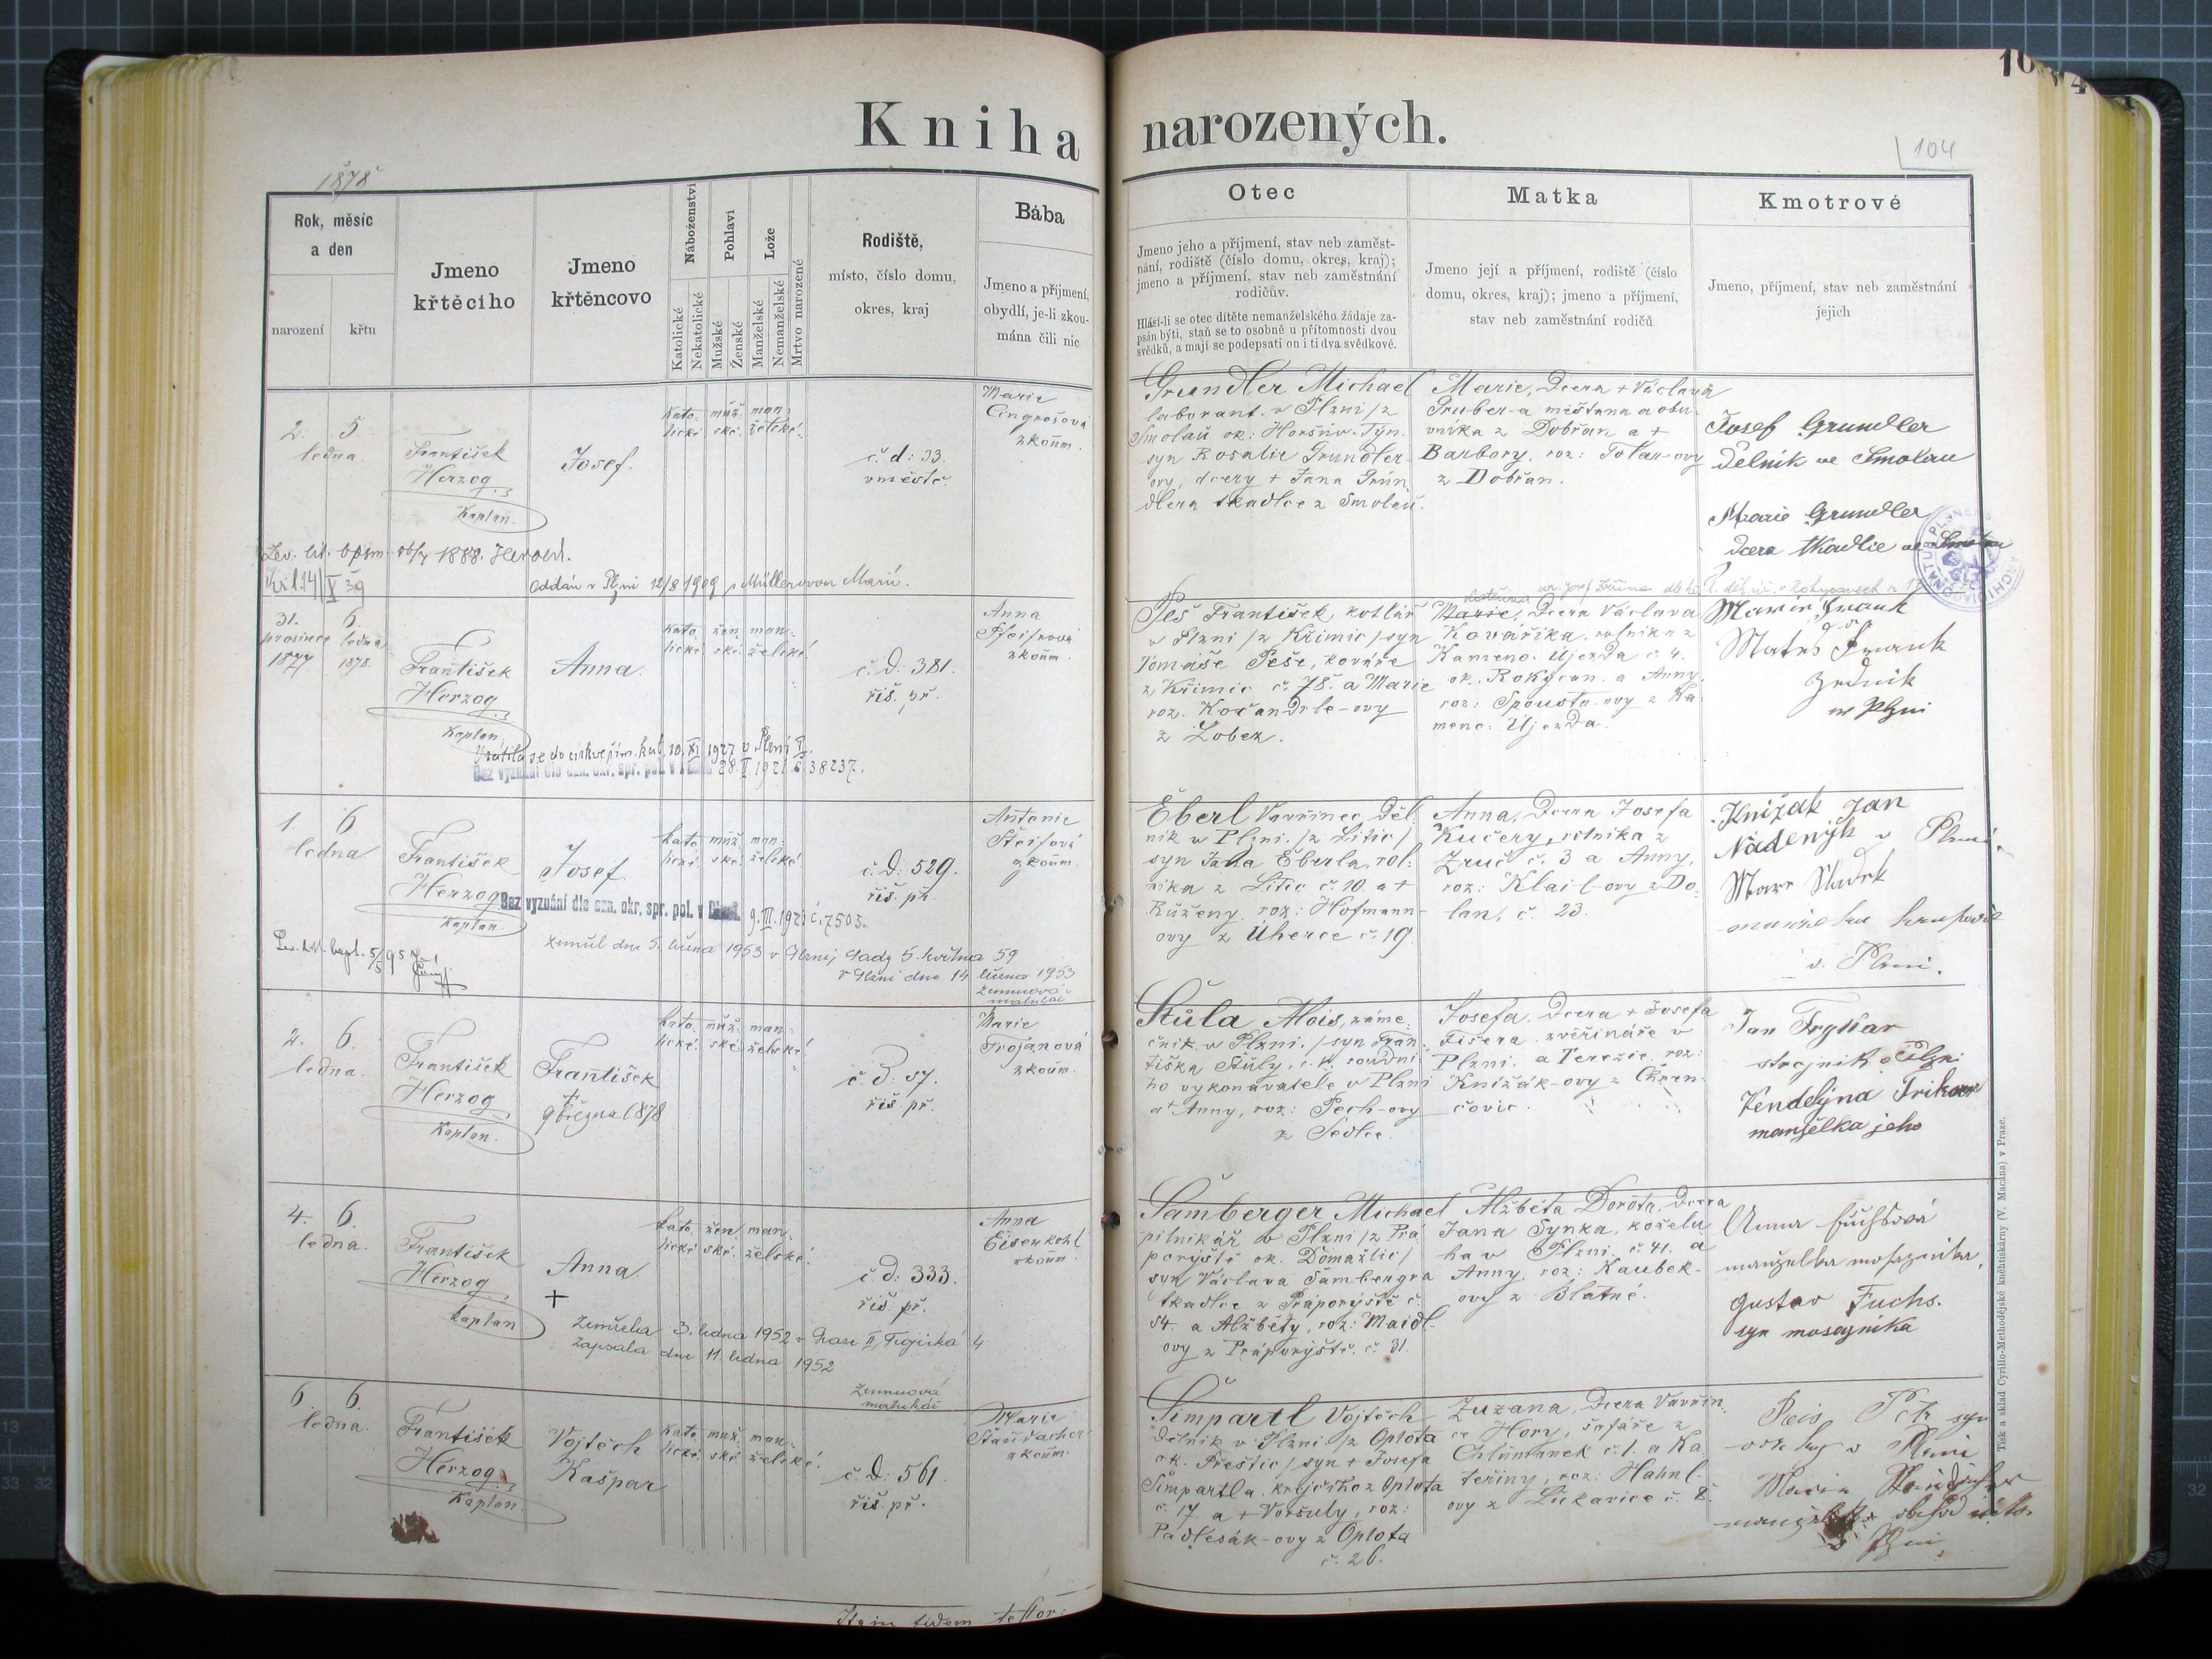 Kniha narozených.
1878
104
Rok, měsíc
a den
narození
křtu
Jmeno
křtěcího
Jmeno
křtěncovo
Náboženství
Katolické
Nekatolické
Pohlaví
Mužské
Ženské
Lože
Manželské
Nemanželské
Mrtvo narozené
Rodiště,
místo, číslo domu,
okres, kraj
Bába
Jmeno a příjmení,
obydlí, je-li zkou-
mána čili nic
Otec
Jmeno jeho a příjmení, stav neb zaměst-
nání, rodiště (číslo domu, okres, kraj);
jmeno a příjmení, stav neb zaměstnání
rodičův.
Hlásí-li se otec dítěte nemanželského žádaje za-
psán býti, staň se to osobně u přítomnosti dvou
svědků, a mají se podepsati on i ti dva svědkové.
Matka
Jmeno její a příjmení, rodiště (číslo
domu, okres, kraj); jmeno a příjmení,
stav neb zaměstnání rodičů
Kmotrové
Jmeno, příjmení, stav neb zaměstnání
jejich
2. 5.
ledna.
František
Herzog
Kaplan.
Josef.
kato- muž- man-
lické. ské. želské.
č. d: 33.
v městě.
Marie
Cingrošová
zkoum.
Grundler Michael
laborant. v Plzni /z
Smolau ok: Horšův. Týn.
syn Rosalie Grundler-
ovy, dcery + Jana Grün
dlera tkadlce z Smolau.
Marie, dcera + Václava
Gruber-a měštana a obu-
vníka z Dobřan a +
Barbory, roz: Tolar-ovy
z Dobřan.
Josef Grundler
dělník ve Smolau
Marie Grundler
dcera tkadlce ve
1888.
Oddán v Plzni 12/8 1909 s Müllerovou Marií.
31. 6.
prosince ledna
1877 1878.
František
Herzog
Kaplan.
Anna.
kato- žen- man-
lické. ské. želské.
č. d: 381.
říš. př.
Anna
Pfeifrová
zkoum.
Vrátila se do církve řím. kat. 10. XI. 1927 v Plzni
Bez vyznání dle ozn. okr. spr. pol. v 1921 38237.
Peš František, kotlář
v Plzni /z Křimic/ syn
Tomáše Peše, kováře
z Křimic č. 78. a Marie
roz. Kočandrle-ovy
z Lobez.
Kateřina
Marie, dcera Václava
Kovaříka, rolníka z
Kameno. Újezda č. 4.
ok. Rokycan. a Anny,
roz: Spousta-ovy z Ka-
meno. Újezda.
Frank
Frank
zedník
v Plzni
1 6
ledna
František
Herzog
Kaplan.
Josef.
kato- muž- man-
lické. ské. želské.
č. d: 529.
říš. př.
Antonie
Šteifová
zkoum.
Bez vyznání dle ozn. okr. spr. pol. v Plzni. 9. III. 1921 č. 7503.
Zemřel dne 5. února 1953 v Plzni, sady 5. května 59
V Plzni dne 14 února 1953
Eberl Vavřinec děl-
ník v Plzni. /z Litic/
syn Jana Eberla, rol-
níka z Litic č. 10. a +
Růženy, roz: Hofmann-
ovy z Úherce č. 19.
Anna, dcera Josefa
Kučery, rolníka z
Zruč č. 3 a Anny,
roz: Klail-ovy z Do-
lan, č. 23.
Knížák Jan
Nádeník v Plzni.
v Plzni.
2. 6.
ledna.
František
Herzog
Kaplan.
František
+
9 března 1878
kato- muž- man-
lické. ské. želské.
č. d: 57.
říš. př.
Marie
Trojanová
zkoum.
Štůla Alois, záme-
čník v Plzni. /syn Fran-
tiška Štůly, c. k. soudní-
ho vykonavatele v Plzni
a + Anny, roz: Pech-ovy
z Sedlce.
Josefa, dcera + Josefa
Fišera zvěřináře v
Plzni. a Terezie, roz:
Knížák-ovy z Chřen-
čovic.
Jan
strojník v Plzni
Vendelína
manželka jeho
4. 6.
ledna.
František
Herzog
Kaplan
Anna
+
kato- žen- man-
lické. ské. želské.
č. d: 333.
říš. př.
Anna
Eisenkohl
zkoum.
Zemřela 3. ledna 1952 v Praze II, 4
Zapsala dne 11. ledna 1952
Šamberger Michael
pilnikář v Plzni /z Prá
poryště ok. Domažlic/
syn Václava Šambergra
tkadlce z Práporyště č.
54. a Alžběty, roz: Maidl-
ovy z Práporyště. č. 31.
Alžběta Dorota, dcera
Jana Synka, koželu-
ha v Plzni. č. 41. a
Anny, roz: Kaubek-
ovy z Blatné.
Anna Fuchsová
manželka mosazníka,
Gustav Fuchs.
syn mosazníka
6 6.
ledna.
František
Herzog
Kaplan.
Vojtěch
Kašpar
kato- muž- man-
lické. ské. želské.
č. d: 561.
říš. př.
Marie
zkoum.
Šimpartl Vojtěch
dělník v Plzni /z Oplota
ok. Přeštic/ syn + Josefa
Šimpartla, krejčího z Oplota
č. 17 a + Voršuly, roz:
Padlesák-ovy z Oplota
č. 26.
Zuzana, dcera Vavřin-
ce Hory, šafáře z
Chlumánek č. 1. a Ka-
teřiny, roz: Hahnl-
ovy z Lukavice č. 8.
v Plzni
Tisk a sklad Cyrillo-Methodějské knihtiskárny (V. Macana) v Praze.